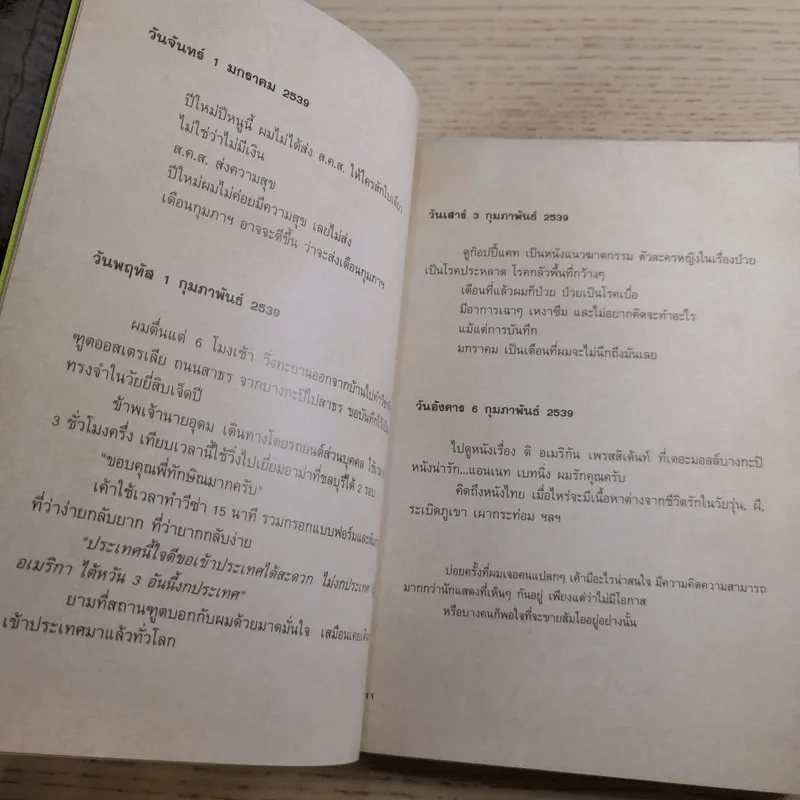 วันจันทร์ 1 มกราคม 2539
ปีใหม่ปีหนูนี้ ผมไม่ได้ส่ง ส.ค.ส. ให้ใครสักใบเดียว
ไม่ใช่ว่าไม่มีเงิน
ส.ค.ส. ส่งความสุข
ปีใหม่ผมไม่ค่อยมีความสุข เลยไม่ส่ง
เดือนกุมภาฯ อาจจะดีขึ้น ว่าจะส่งเดือนกุมภาฯ
วันพฤหัส 1 กุมภาพันธ์ 2539
ผมตื่นแต่ 6 โมงเช้า วิ่งทะยานออกจากบ้านไปทำวีซ่าที่
ฑูตออสเตรเลีย ถนนสาธร จากบางกะปิไปสาธร ขอบันทึกไว้เป็น
ทรงจำในวัยยี่สิบเจ็ดปี
ข้าพเจ้านายอุดม เดินทางโดยรถยนต์ส่วนบุคคล ใช้เวลา
3 ชั่วโมงครึ่ง เทียบเวลานี้ใช้วิ่งไปเยี่ยมอาม่าที่ชลบุรีได้ 2 รอบ
"ขอบคุณพี่ทักษิณมากครับ"
เค้าใช้เวลาทำวีซ่า 15 นาที รวมกรอกแบบฟอร์มและสัมภาษณ์
ที่ว่าง่ายกลับยาก ที่ว่ายากกลับง่าย
"ประเทศนี้ใจดีขอเข้าประเทศได้สะดวก ไม่งกประเทศ
อเมริกา ไต้หวัน 3 อันนี้งกประเทศ"
ยามที่สถานฑูตบอกกับผมด้วยมาดมั่นใจ เสมือนเคยเดิน
เข้าประเทศมาแล้วทั่วโลก
11
วันเสาร์ 3 กุมภาพันธ์ 2539
ดูก๊อปปี้แคท เป็นหนังแนวฆาตกรรม ตัวละครหญิงในเรื่องป่วย
เป็นโรคประหลาด โรคกลัวพื้นที่กว้างๆ
เดือนที่แล้วผมก็ป่วย ป่วยเป็นโรคเบื่อ
มีอาการเฉาๆ เหงาซึม และไม่อยากคิดจะทำอะไร
แม้แต่การบันทึก
มกราคม เป็นเดือนที่ผมจะไม่นึกถึงมันเลย
วันอังคาร 6 กุมภาพันธ์ 2539
ไปดูหนังเรื่อง ดิ อเมริกัน เพรสสิเด้นท์ ที่เดอะมอลล์บางกะปิ
หนังน่ารัก...แอนเนท เบทนิ่ง ผมรักคุณครับ
คิดถึงหนังไทย เมื่อไหร่จะมีเนื้อหาต่างจากชีวิตรักในวัยรุ่น, ผี,
ระเบิดภูเขา เผากระท่อม ฯลฯ
บ่อยครั้งที่ผมเจอคนแปลกๆ เค้ามีอะไรน่าสนใจ มีความคิดความสามารถ
มากกว่านักแสดงที่เห็นๆ กันอยู่ เพียงแต่ว่าไม่มีโอกาส
หรือบางคนก็พอใจที่จะขายส้มโออยู่อย่างนั้น